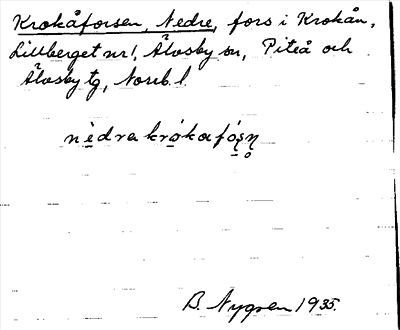 Krokåforsen, Nedre, fors i Krokån,
Lillberget nr 1, Älvsby sn, Piteå och
Älvsby tg, Norrb. l.
nèdra krókafósn̥
B. Nygren 1935.